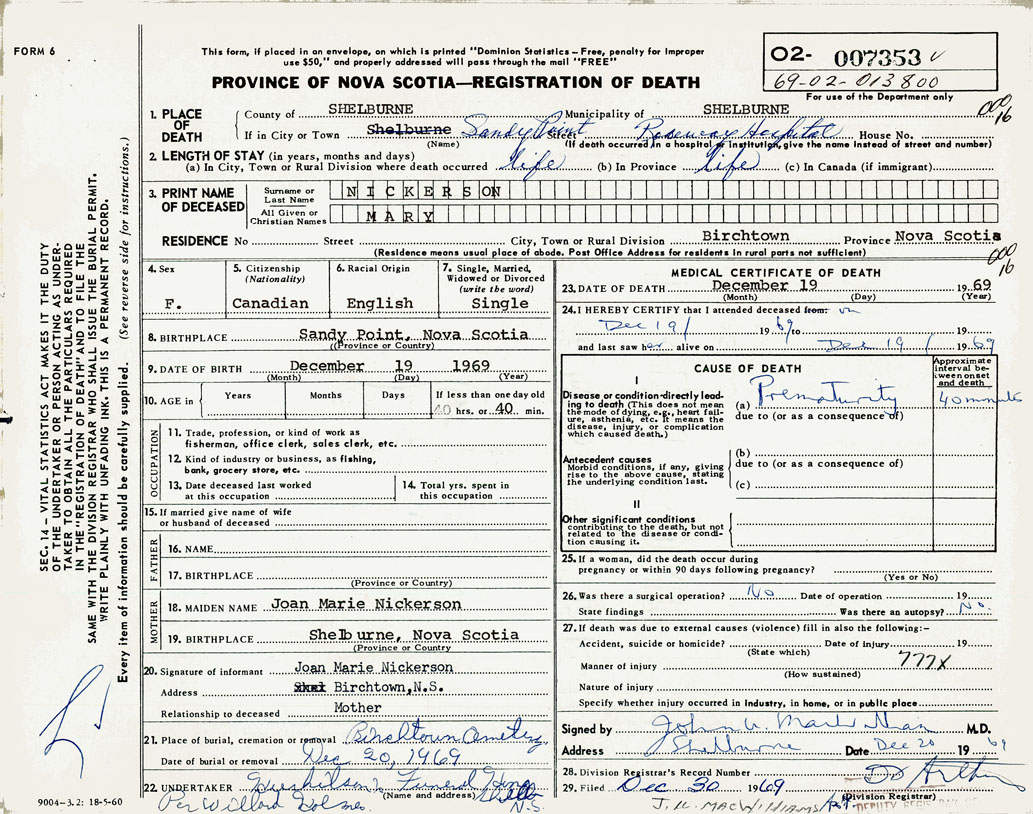 FORM 6
This form, if placed in an envelope, on which is printed "Dominion Statistics – Free, penalty for improper
use $50," and properly addressed will pass through the mail "FREE"
PROVINCE OF NOVA SCOTIA—REGISTRATION OF DEATH
02- 007353
69-02-013800
For use of the Department only
SEC. 14 – VITAL STATISTICS ACT MAKES IT THE DUTY
OF THE UNDERTAKER OR PERSON ACTING AS UNDER-
TAKER TO OBTAIN ALL THE PARTICULARS REQUIRED
IN THE "REGISTRATION OF DEATH" AND TO FILE THE
SAME WITH THE DIVISION REGISTRAR WHO SHALL ISSUE THE BURIAL PERMIT.
WRITE PLAINLY WITH UNFADING INK. THIS IS A PERMANENT RECORD.
Every item of information should be carefully supplied. (See reverse side for instructions.)
1. PLACE OF DEATH
County of SHELBURNE Municipality of SHELBURNE
000 16
If in City or Town Shelburne Sandy Point Street Roseway Hospital House No.
(Name) (If death occurred in a hospital or institution, give the name instead of street and number)
2. LENGTH OF STAY (in years, months and days)
(a) In City, Town or Rural Division where death occurred life (b) In Province life (c) In Canada (if immigrant)
3. PRINT NAME OF DECEASED
Surname or Last Name NICKERSON
All Given or Christian Names MARY
RESIDENCE No Street City, Town or Rural Division Birchtown Province Nova Scotia
(Residence means usual place of abode. Post Office Address for residents in rural parts not sufficient)
000 16
4. Sex F.
5. Citizenship (Nationality) Canadian
6. Racial Origin English
7. Single, Married, Widowed or Divorced (write the word) Single
8. BIRTHPLACE Sandy Point, Nova Scotia
(Province or Country)
9. DATE OF BIRTH December 19 1969
(Month) (Day) (Year)
10. AGE in Years Months Days If less than one day old
40 hrs. or 40 min.
OCCUPATION
11. Trade, profession, or kind of work as
fisherman, office clerk, sales clerk, etc.
12. Kind of industry or business, as fishing,
bank, grocery store, etc.
13. Date deceased last worked
at this occupation
14. Total yrs. spent in
this occupation
15. If married give name of wife
or husband of deceased
FATHER
16. NAME
17. BIRTHPLACE
(Province or Country)
MOTHER
18. MAIDEN NAME Joan Marie Nickerson
19. BIRTHPLACE Shelburne, Nova Scotia
(Province or Country)
20. Signature of informant Joan Marie Nickerson
Address Birchtown, N.S.
Relationship to deceased Mother
21. Place of burial, cremation or removal Birchtown Cemetery
Date of burial or removal Dec 20, 1969
22. UNDERTAKER Funeral Home
(Name and address) N.S.
Per Willard Holmes
9004–3.2: 18-5-60
MEDICAL CERTIFICATE OF DEATH
23. DATE OF DEATH December 19 1969
(Month) (Day) (Year)
24. I HEREBY CERTIFY that I attended deceased from: on
Dec 19/ 1969 to 19
and last saw her alive on Dec 19 / 1969
CAUSE OF DEATH
Approximate interval between onset and death
I
Disease or condition directly lead-
ing to death (This does not mean
the mode of dying, e.g., heart fail-
ure, asthenia, etc. It means the
disease, injury, or complication
which caused death.)
(a) Prematurity 40 minutes
due to (or as a consequence of)
Antecedent causes
Morbid conditions, if any, giving
rise to the above cause, stating
the underlying condition last.
(b)
due to (or as a consequence of)
(c)
II
Other significant conditions
contributing to the death, but not
related to the disease or condi-
tion causing it.
25. If a woman, did the death occur during
pregnancy or within 90 days following pregnancy?
(Yes or No)
26. Was there a surgical operation? No Date of operation 19
State findings Was there an autopsy? No.
27. If death was due to external causes (violence) fill in also the following:–
Accident, suicide or homicide? Date of injury 19
(State which)
777X
Manner of injury
(How sustained)
Nature of injury
Specify whether injury occurred in Industry, in home, or in public place
Signed by M.D.
Address Shelburne Date Dec 20 1969
28. Division Registrar's Record Number
29. Filed Dec 30 1969
(Division Registrar)
J. H. MACWILLIAMS
DEPUTY